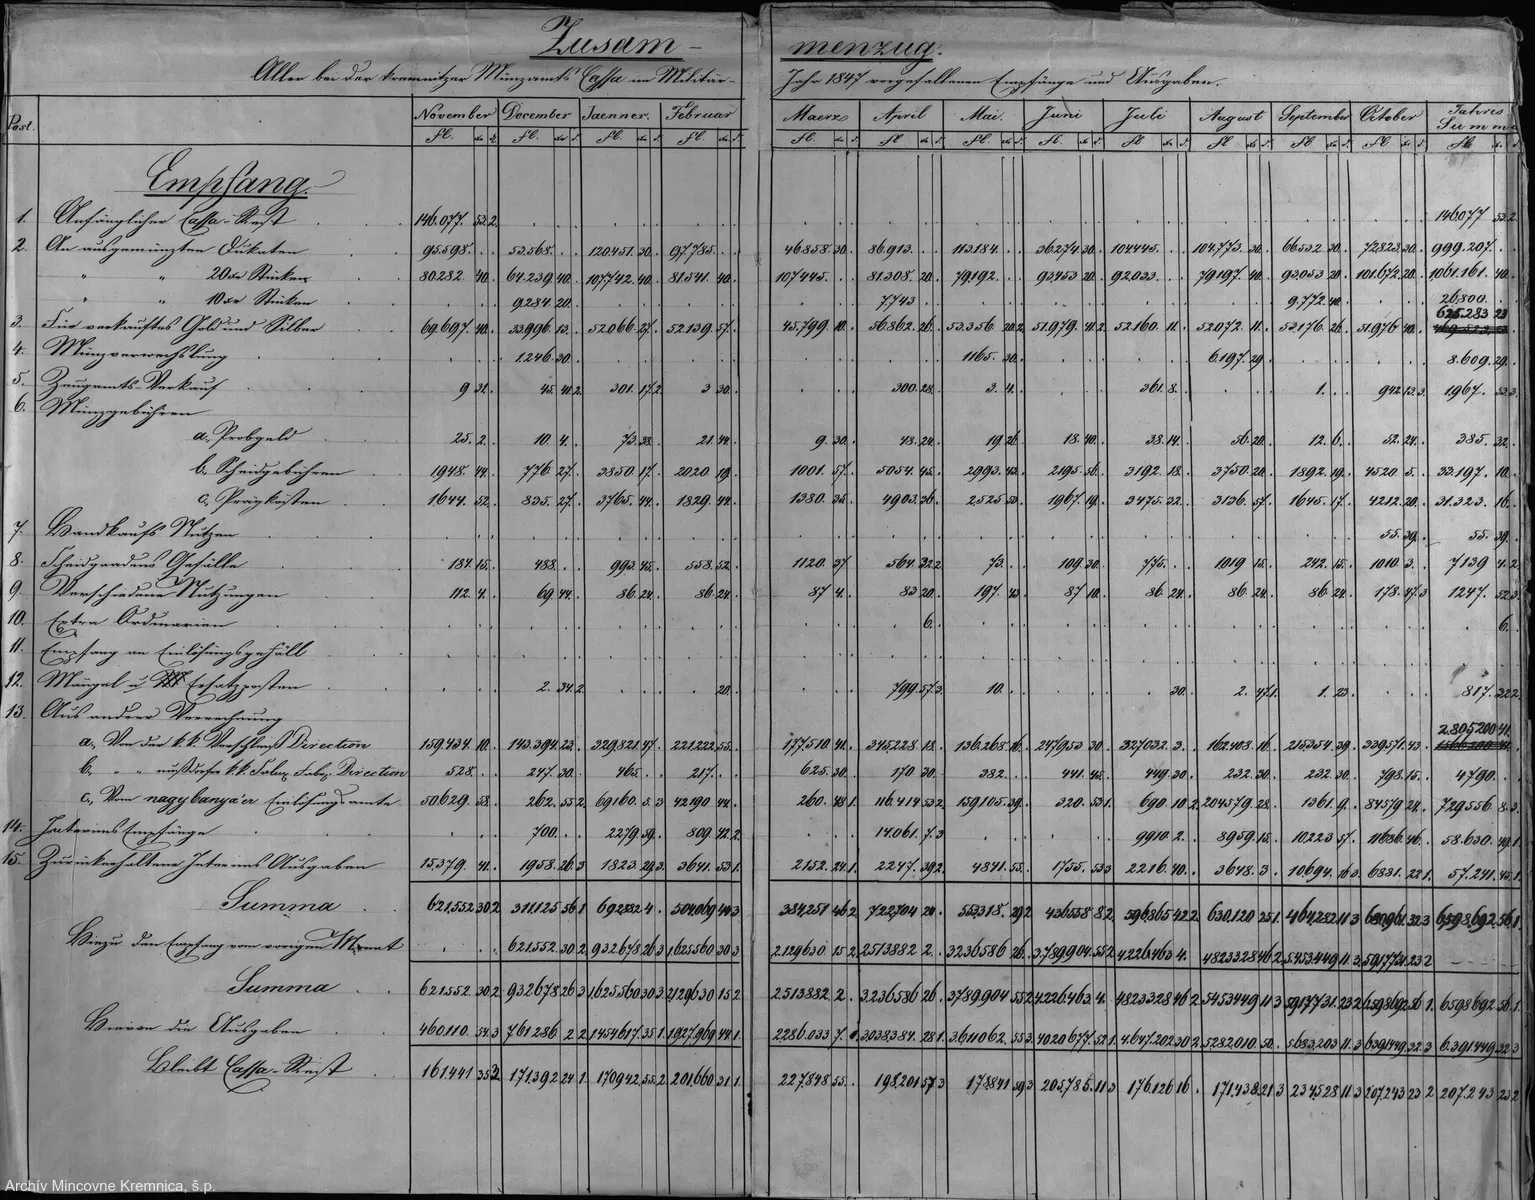 Zusammenzug.
Aller bei der kremnitzer Münzamts Cassa im Militär-Jahr 1847 vorgefallenen Empfänge und Ausgaben.
Post. November December Jaenner. Februar Maerz April Mai. Juni Juli August September October Jahres Summa
fl. xr d fl. xr d fl. xr d fl. xr d fl xr d fl xr d fl. xr d fl. xr d fl xr d fl xr d fl xr d fl. xr d fl xr d
Empfang.
1. Anfänglicher Cassa-Rest 146.077. 53.2 146077 53.2
2. An ausgemünzten Dukaten 95.598. 53.568. 120.451. 30. 97.785. 46.858. 30. 86.913. 113184. 36.274 30. 104445. 104.773. 30. 66.532 30. 72823. 30. 999.207.
" " 20xr Stücken 80.282 40. 64.239 40. 107.742 40. 81.541. 40. 107.445. 81.308. 20. 79.192. 93.453 20. 92.033. 79.197. 40. 93.053 20. 101.672 20. 1,061.161. 40.
" " 10xr Stücken 9.284 20. 7743 9.772 40. 26.800.
3. Für verkauftes Gold und Silber 69.697. 40. 33.996. 13. 52.066. 27. 52.139. 57. 45.799 10. 56.862. 26. 53.356 20.2 51.979. 41.2 52.160. 11. 52.072. 11. 53.176. 26. 51.976 40. 625.283 23
4. Münzverwechslung 1.246. 30. 1165. 30. 6.197. 29. 8.609. 29.
5. Zeugamts Verkauf 9 31. 45. 41 2. 301. 17.2 3 30. 300. 28. 3. 4. 361. 8. 1. 942. 13.3. 1.967. 53 3.
6. Münzgebühren
a., Probgeld 25. 2. 10. 4. 73. 38. 21. 44. 9. 30. 48. 24. 19. 26. 18. 40. 38. 14. 56. 20. 12. 6. 52. 24. 385. 32.
b., Scheidgebühren 1948. 44. 776. 27. 3850. 17. 2020. 19. 1001. 57. 5054. 45. 2993. 43. 2195. 56. 3192. 18. 3750. 20. 1892. 19. 4520. 5. 33.197. 10.
c., Prägkosten 1644. 52. 835. 27. 3765. 44. 1829. 44. 1380. 35. 4903. 36. 2525. 53. 1967. 19. 3475. 32. 3136. 57. 1645. 17. 4212. 20. 31.323. 16.
7. Handkaufs Nutzen 55. 39. 55. 39.
8. Scheidgadens Gefälle 184. 15. 488. 993. 45. 558. 52. 1120. 37 564. 32 2 73. 109. 30. 775. 1019 15. 242. 15. 1010. 3. 7139 4. 2
9. Verschiedene Nutzungen 112. 4. 69 44. 86. 24. 86. 24. 87 4. 83 20. 197. 43. 87 10. 86. 24. 86. 24. 86. 24. 178. 47. 3 1247. 52 3.
10. Extra Ordinarien 6. 6.
11. Empfang an Einlösungsgefäll
12. Mängel u Ersatzposten 2. 34. 2 20. 799. 57. 3 10. 30. 2. 47 1. 1. 23. 817. 32 2.
13. Aus andrer Verrechnung 2,805.200 41.
a., Von der k. k. Verschleiß Direction 159.434. 10. 143.394. 23. 329.821. 47. 221.222. 55. 177510. 41. 345.228. 18. 136.268. 16. 247953 30. 327032. 3. 162.108. 16. 215354. 39. 339571. 43.
b., " " k. k. Direction 528. 247. 30. 465. 217. 625. 30. 170 30. 382. 441. 45. 449. 30. 232. 30. 232 30. 798. 15. 4790.
c., Vom nagybanyáer Einlösungsamte 50629. 58. 262. 55 2 69160. 5. 3 42190 44. 260. 48 1. 116.414 53 2. 159.105. 39. 320. 53 1. 690. 10 2. 204579. 28. 1361. 9. 84579 24. 729.556. 8. 3.
14. Interims Empfänge 700. 2279. 59. 809. 42. 2. 14.061. 7. 3 9910. 2. 8959. 15. 10223 57. 11686. 46. 58.630. 49. 1.
15. Zurückerhaltene Interims Ausgaben 15.379. 41. 1958. 26. 3 1823. 29 3 3641. 53 1. 2152. 24. 1. 2247. 39 2. 4841. 55. 1755. 53 3 2216. 40. 3648. 3. 10694. 16 3. 6831. 22 1. 57.241. 45. 1.
Summa 621.552 30 2 311.125 56 1 692882 4. 504069 44 3 384251 46 2 722704 24. 553318. 29 2 436558 8 2. 596865 42 2. 630.120 25 1. 464.282 11 3 680961 32 3 6598.692 56 1.
Hiezu den Empfang vom vorigen Monat 621.552. 30 2. 932678 26 3 1,625560 30 3 2.129630 15 2. 2513882 2. 3236586 26. 3.789.904. 55 2 4226.463 4. 4823328 46 2. 5453.449 11 3. 5917731. 23 2
Summa 621552. 30 2. 932678 26 3 1625560 30 3 2129630 15 2 2513882 2. 3.236586 26. 3789.904 55 2 4.226.463. 4. 4823328 46 2. 5453449 11 3 5917731. 23 2 6598692 56 1. 6598692 56 1.
Hievon die Ausgaben 460110. 54. 3 761286 2 2 1454617. 35 1. 1.927969 44 1. 2286.033 7. 3,038384. 28 1. 3,611062. 55 3. 4020677. 52 1. 4.647.202 30 2. 5282010. 50. 5683203 11. 3 6391449 32 3 6,391449 32 3
Bleibt Cassa-Rest 161441 35 3 171.392 24 1. 170942. 55. 2 201.660 31 1. 227.848 55. 198.201 57 3 178841 59 3 205.785. 11 3 176126 16. 171.438. 21 3 234528 11 3 207.243 23 2 207.243 23 2
Archív Mincovne Kremnica, š.p.